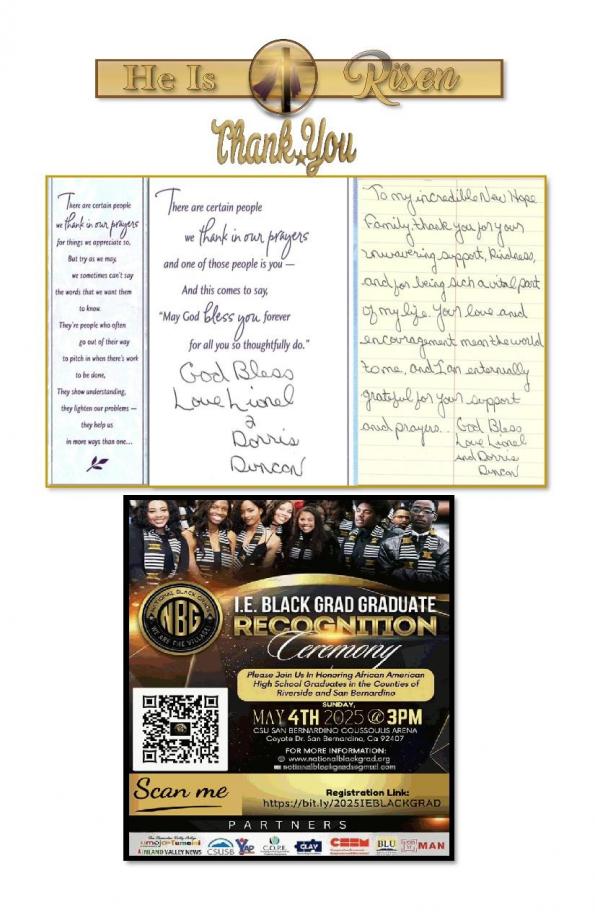 He Is Risen
Thank You
There are certain people
we thank in our prayers
for things we appreciate so,
But try as we may,
we sometimes can't say
the words that we want them
to know.
They're people who often
go out of their way
to pitch in when there's work
to be done,
They show understanding,
they lighten our problems —
they help us
in more ways than one...
There are certain people
we thank in our prayers
and one of those people is you —
And this comes to say,
"May God bless you forever
for all you so thoughtfully do."
God Bless
Love Lionel
&
Dorris
Duncan
To my incredible New Hope
Family, thank you for your
unwavering support, kindness,
and for being such a vital part
of my life. Your love and
encouragement mean the world
to me, and I am enternally
grateful for your support
and prayers... God Bless
Love Lionel
and Dorris
Duncan
NATIONAL BLACK GRAD
NBG
WE ARE THE VILLAGE
I.E. BLACK GRAD GRADUATE
RECOGNITION
Ceremony
Please Join Us In Honoring African American
High School Graduates in the Counties of
Riverside and San Bernardino
SUNDAY,
MAY 4TH 2025 @ 3PM
CSU SAN BERNARDINO COUSSOULIS ARENA
Coyote Dr. San Bernardino, Ca 92407
FOR MORE INFORMATION:
www.nationalblackgrad.org
nationalblackgrads@gmail.com
Scan me
Registration Link:
https://bit.ly/2025IEBLACKGRAD
PARTNERS
INLAND VALLEY NEWS
CSUSB
YAP
C.O.P.E.
CLAY
BLU
MAN